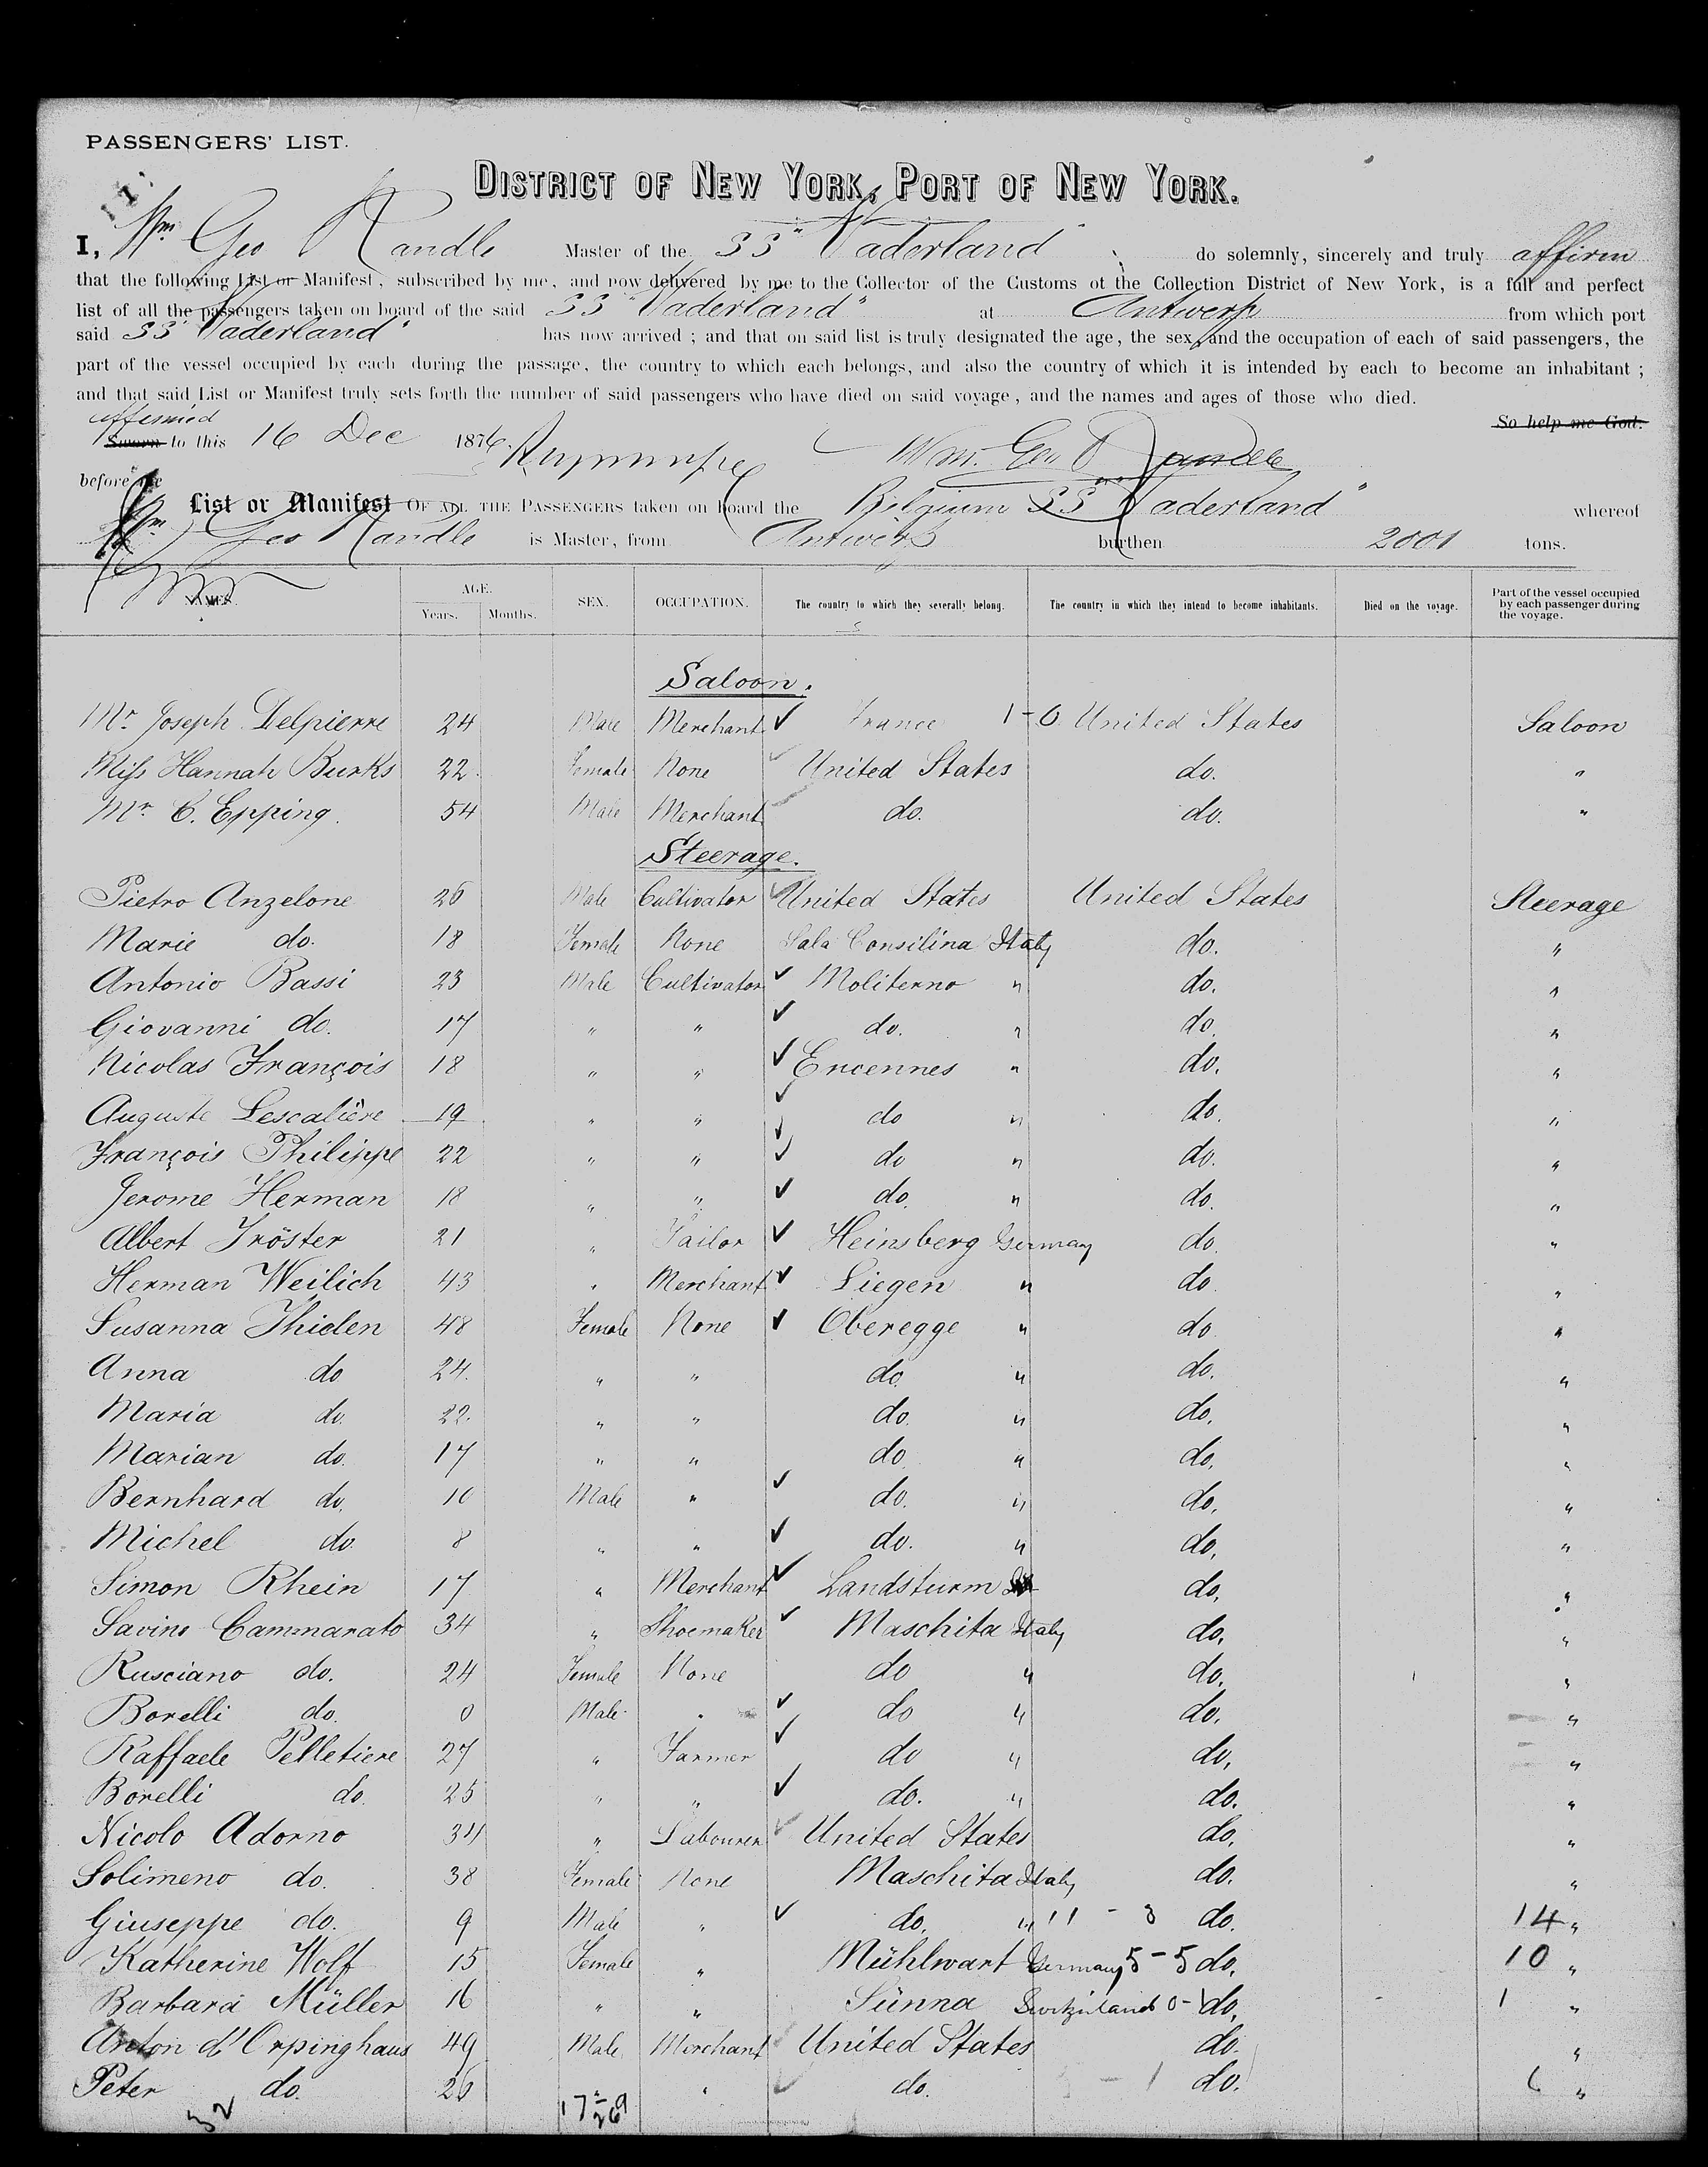 PASSENGERS' LIST.
DISTRICT OF NEW YORK, PORT OF NEW YORK.
I, Wm Geo Randle Master of the SS "Vaderland" do solemnly, sincerely and truly affirm
that the following List or Manifest, subscribed by me, and now delivered by me to the Collector of the Customs of the Collection District of New York, is a full and perfect
list of all the passengers taken on board of the said SS "Vaderland" at Antwerp from which port
said SS "Vaderland" has now arrived; and that on said list is truly designated the age, the sex, and the occupation of each of said passengers, the
part of the vessel occupied by each during the passage, the country to which each belongs, and also the country of which it is intended by each to become an inhabitant;
and that said List or Manifest truly sets forth the number of said passengers who have died on said voyage, and the names and ages of those who died.
affirmed So help me God.
Sworn to this 16 Dec 1876 Wm. Geo Randle
before me
List or Manifest OF ALL THE PASSENGERS taken on board the Belgium SS "Vaderland" whereof
Wm Geo Randle is Master, from Antwerp burthen 2001 tons.
NAMES. AGE. Years. Months. SEX. OCCUPATION. The country to which they severally belong. The country in which they intend to become inhabitants. Died on the voyage. Part of the vessel occupied by each passenger during the voyage.
Saloon.
Mr. Joseph Delpierre 24 Male Merchant France 1-0 United States Saloon
Miss Hannah Burks 22 Female None United States do. "
Mr. C. Epping. 54 Male Merchant do. do. "
Steerage.
Pietro Anzelone 26 Male Cultivator United States United States Steerage
Marie do. 18 Female None Sala Consilina Italy do. "
Antonio Bassi 23 Male Cultivator Moliterno " do. "
Giovanni do. 17 " " do. " do. "
Nicolas François 18 " " Encennes " do. "
Auguste Lescalière 19 " " do " do. "
François Philippe 22 " " do " do. "
Jerome Herman 18 " " do. " do. "
Albert Tröster 21 " Tailor Heinsberg Germany do. "
Herman Weilich 43 " Merchant Siegen " do "
Susanna Thielen 48 Female None Oberegge " do "
Anna do 24 " " do " do. "
Maria do. 22 " " do. " do. "
Marian do. 17 " " do " do. "
Bernhard do. 10 Male " do. " do. "
Michel do. 8 " " do. " do. "
Simon Rhein 17 " Merchant Landsturm do. "
Savino Cammarato 34 " Shoemaker Maschita Italy do. "
Rusciano do. 24 Female None do " do. "
Borelli do. 0 Male " do " do. "
Raffaele Pelletiere 27 " Farmer do " do. "
Borelli do. 25 " " do. " do. "
Nicolo Adorno 34 " Labourer United States do. "
Solimeno do. 38 Female None Maschita Italy do. "
Giuseppe do. 9 Male " do. " 11 - 3 do. 14 "
Katherine Wolf 15 Female " Mühlwart Germany 5-5 do. 10 "
Barbara Müller 16 " " Sünna Switzerland 0-1 do. 1 "
Anton d'Orpinghaus 49 Male Merchant United States do. "
Peter do. 26 " " do. - 1 do. 6 "
32